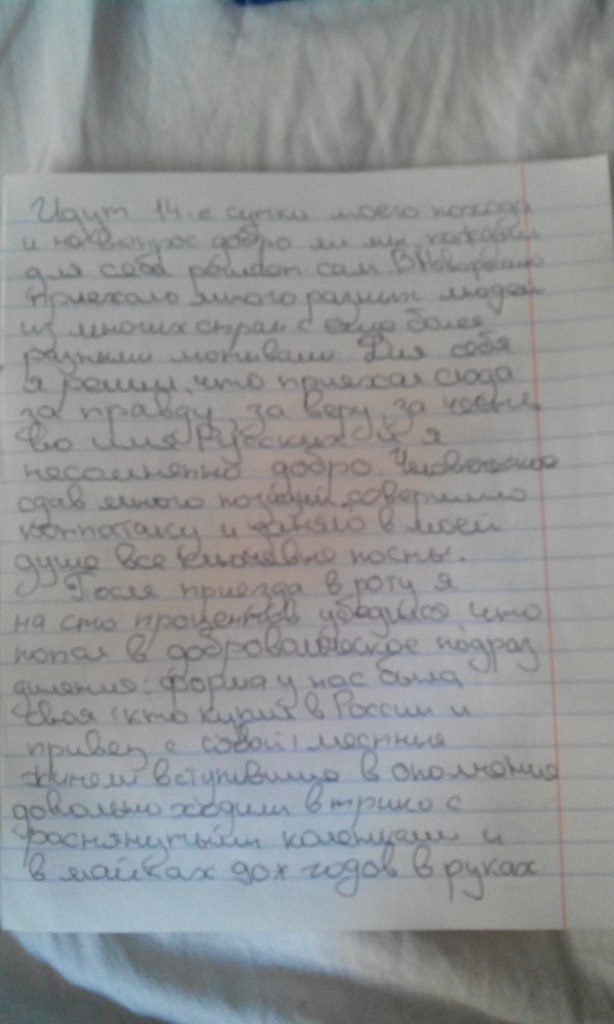 Идут 14-е сутки моего похода
и на вопрос добро ли мы, каждый
для себя решает сам. В Новороссию
приехало много разных людей
из многих стран с еще более
разными мотивами. Для себя
я решил, что приехал сюда
за правду, за веру, за
Во имя Русских. И я
несомненно добро. Человеческое
сдав много позиций, совершило
контратаку и заняло в моей
душе все ключевые посты.
После приезда в роту я
на сто процентов убедился, что
попал в добровольческое подраз
диления: форма у нас была
своя (кто купил в России и
привез с собой) местные
жители вступившие в ополчение
довольно ходили в трико с
растянутыми коленцами и
в майках 90х годов в руках